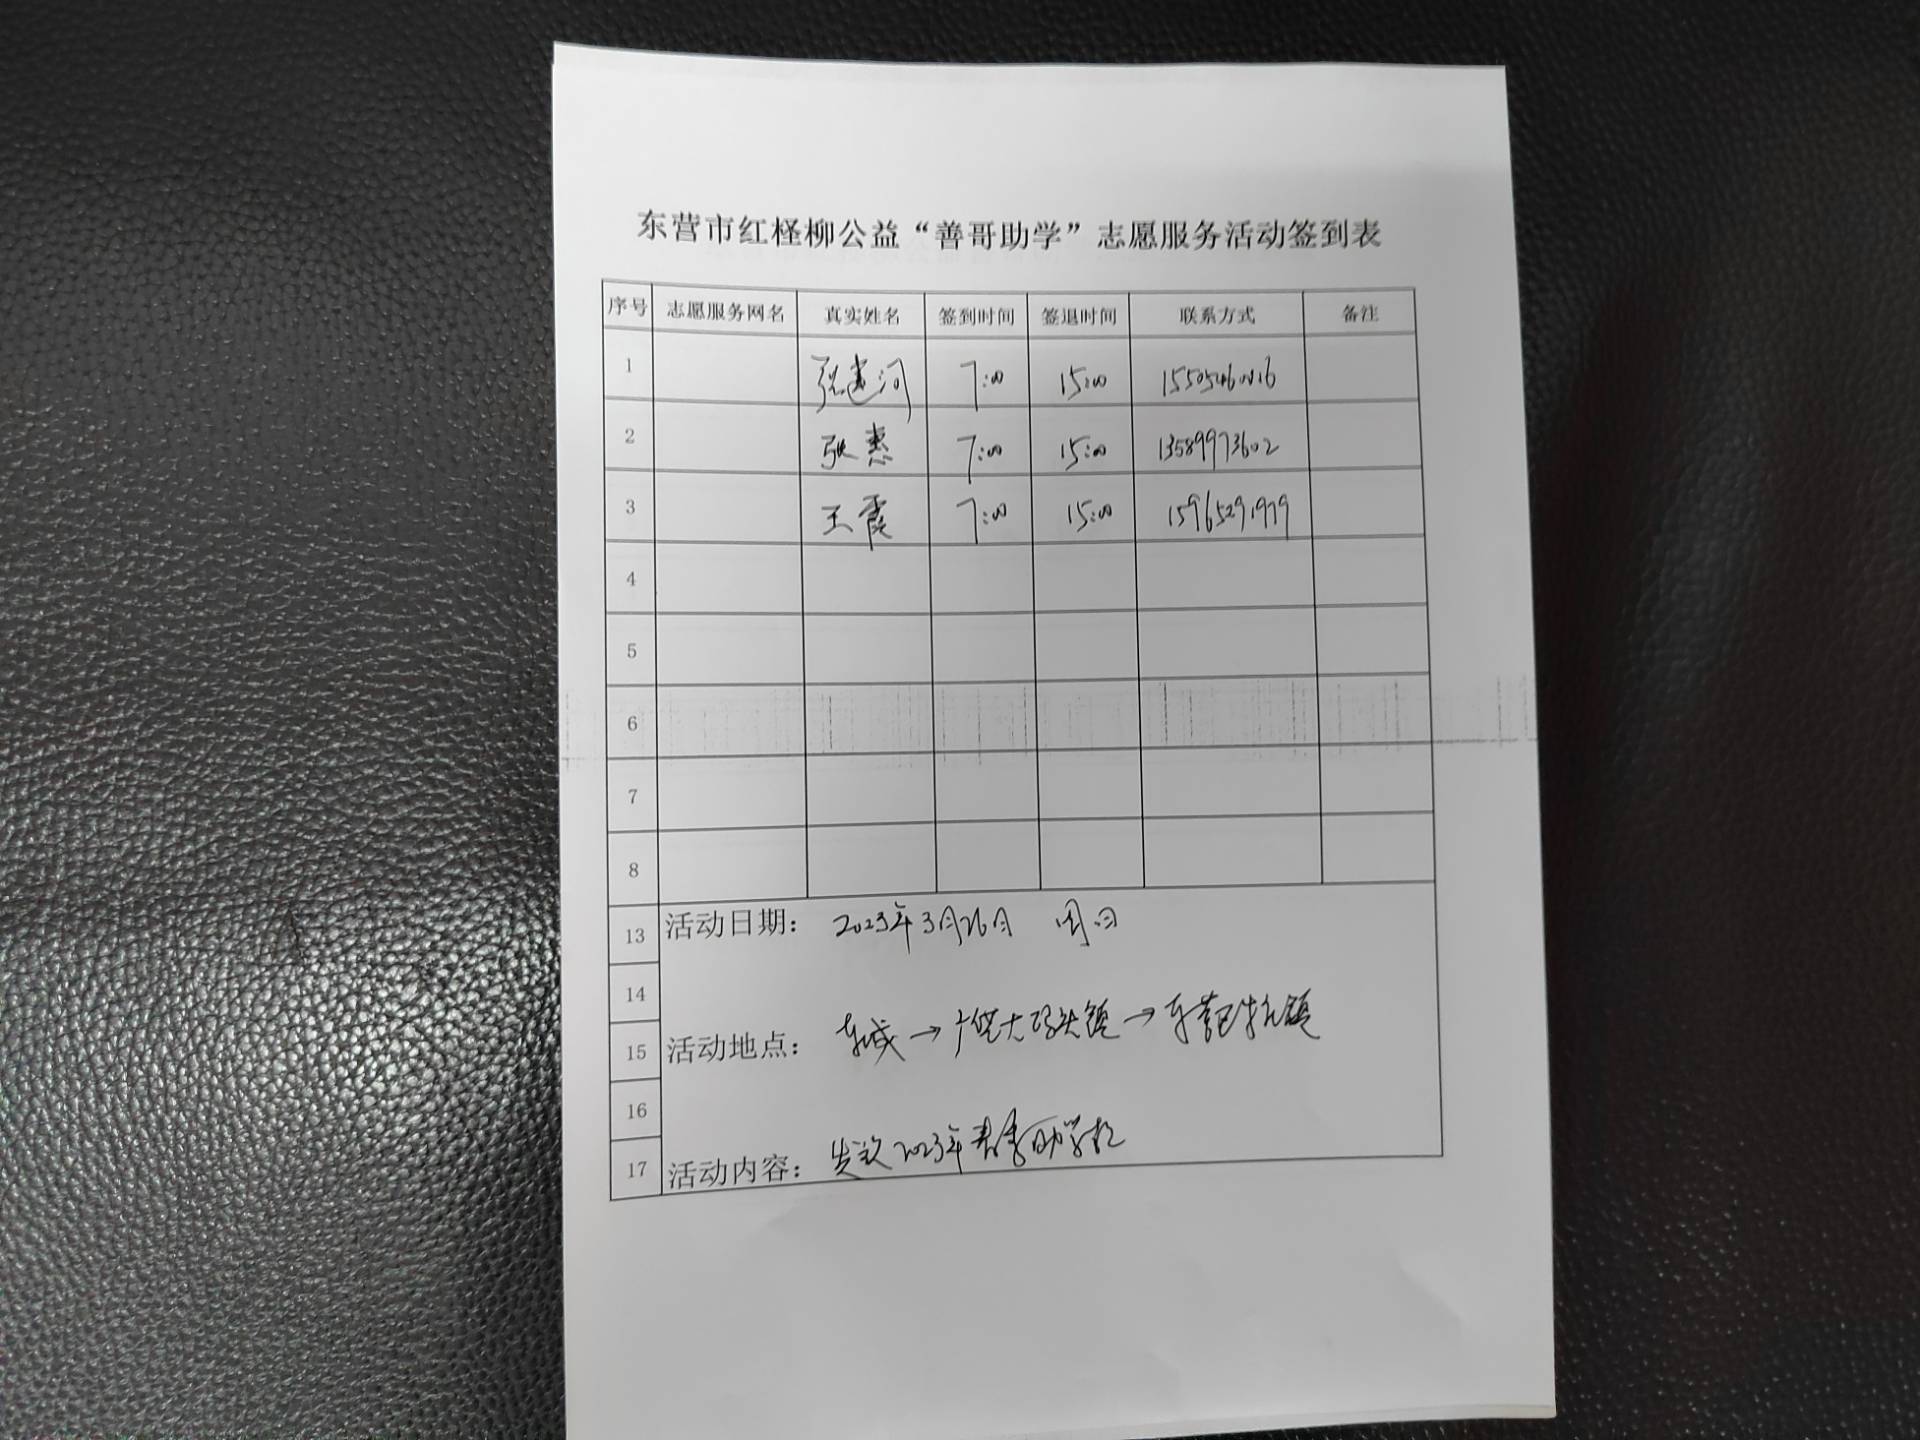 东营市红柽柳公益“善哥助学”志愿服务活动签到表
序号 志愿服务网名 真实姓名 签到时间 签退时间 联系方式 备注
1 张建河 7:00 15:00
2 张惠 7:00 15:00 13589973602
3 王霞 7:00 15:00 15965291979
4
5
6
7
8
13 活动日期： 2023年3月26日 周日
14
15 活动地点： 东城→广饶大码头镇→东营区牛庄镇
16
17 活动内容： 发放2023年春季助学款